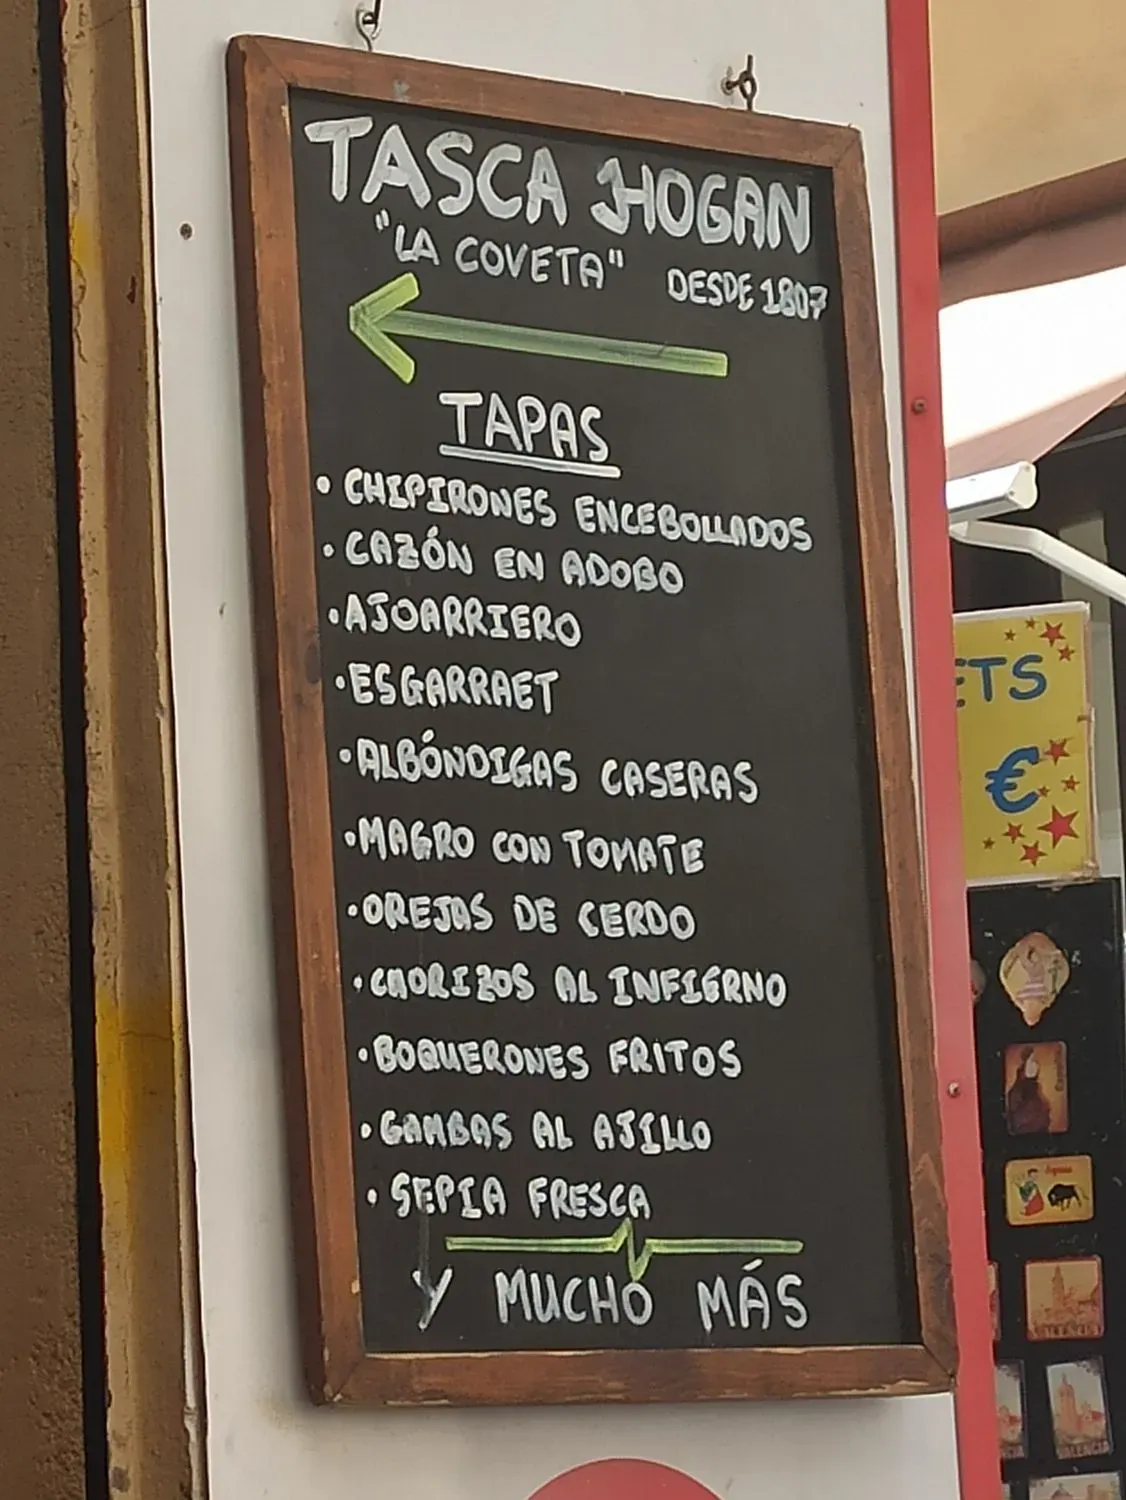 TASCA JHOGAN
"LA COVETA" DESDE 1807
TAPAS
• CHIPIRONES ENCEBOLLADOS
• CAZÓN EN ADOBO
• AJOARRIERO
• ESGARRAET
• ALBÓNDIGAS CASERAS
• MAGRO CON TOMATE
• OREJAS DE CERDO
• CHORIZOS AL INFIERNO
• BOQUERONES FRITOS
• GAMBAS AL AJILLO
• SEPIA FRESCA
Y MUCHO MÁS
ETS
€
VALENCIA